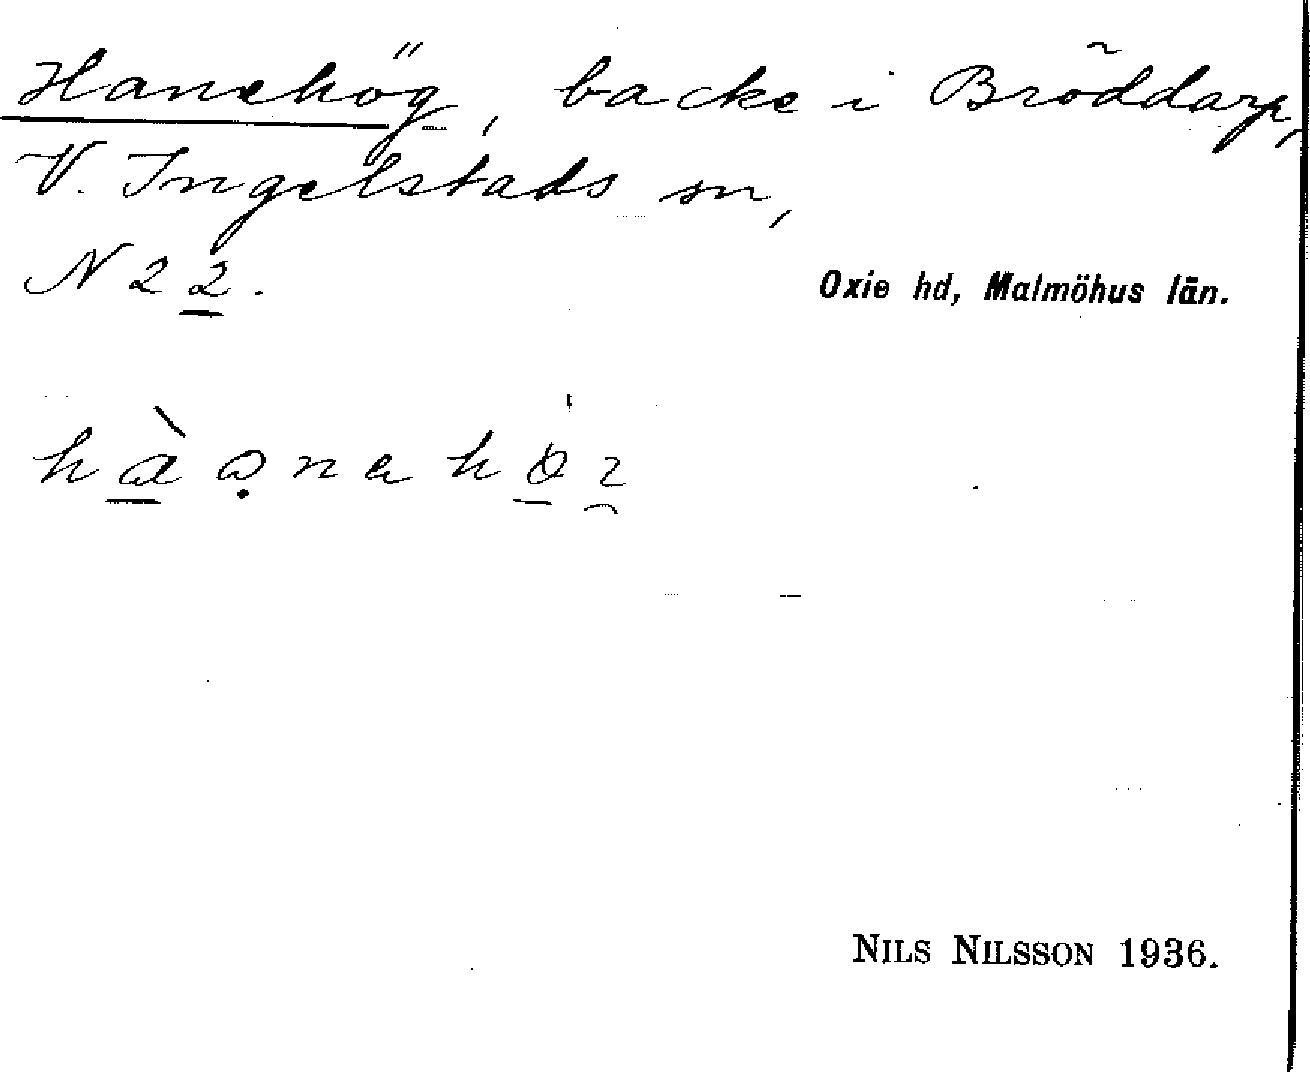 Hanehög, backe i Bröddarp,
V. Ingelstads sn,
N 22.
Oxie hd, Malmöhus län.
NILS NILSSON 1936.